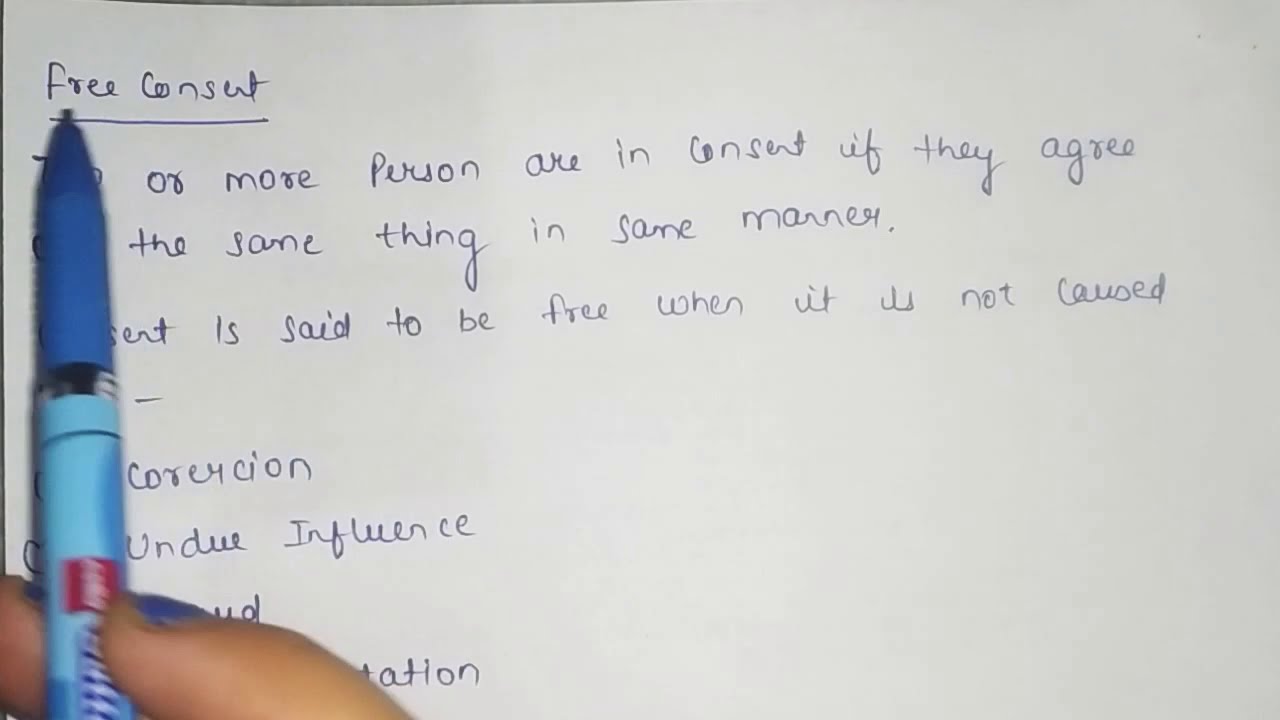 Free Consent
or more Person are in Consent if they agree
the same thing in same manner.
is said to be free when it is not caused
—
Corercion
Undue Influence